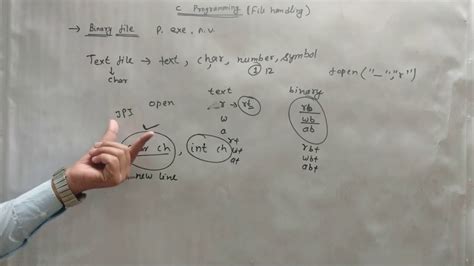 C Programming (File handling)
→ Binary file P. exe, n.v.
Text file → text, char, number, symbol
char ① 12 fopen("_","r")
text binary
JPI open r → rt rb
w wb
a ab
ch, int ch r+ rb+
w+ wb+
a+ ab+
new line